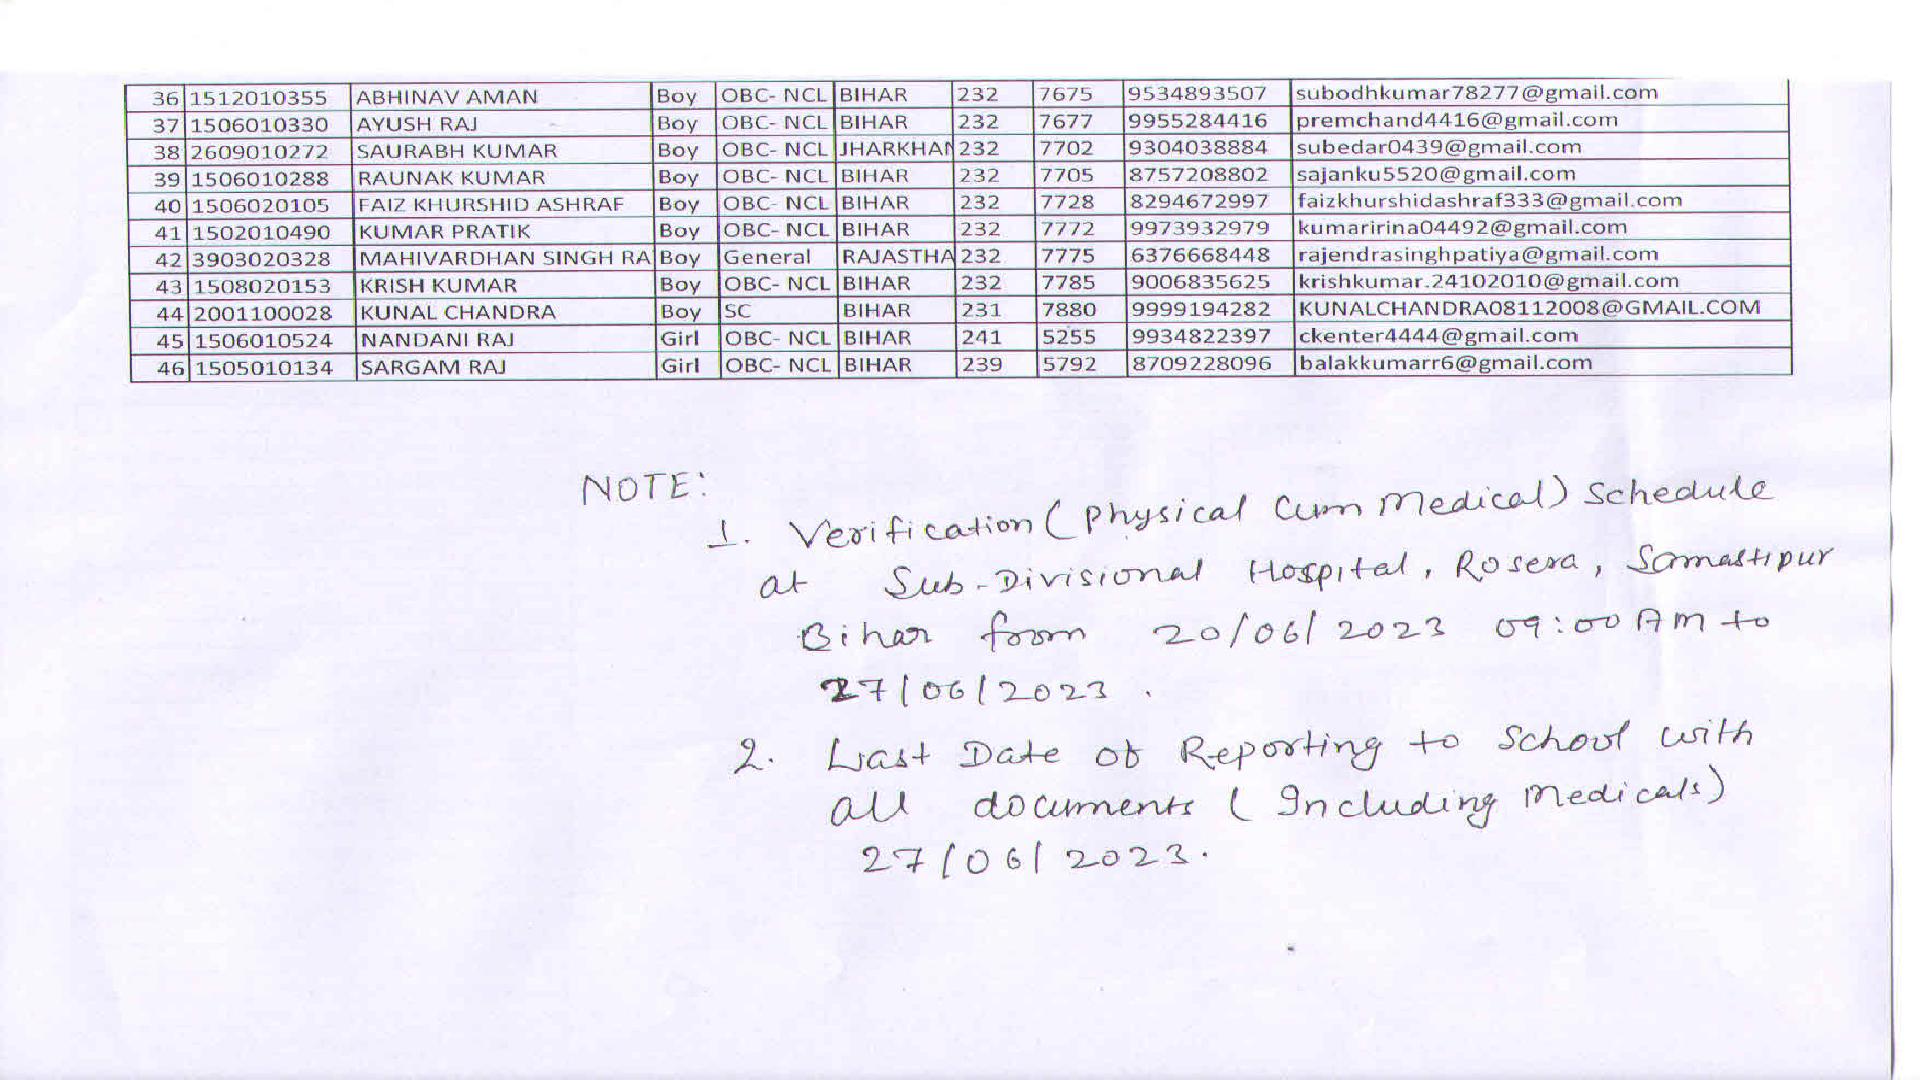 36 1512010355 ABHINAV AMAN Boy OBC- NCL BIHAR 232 7675 9534893507 subodhkumar78277@gmail.com
37 1506010330 AYUSH RAJ Boy OBC- NCL BIHAR 232 7677 9955284416 premchand4416@gmail.com
38 2609010272 SAURABH KUMAR Boy OBC- NCL JHARKHAN 232 7702 9304038884 subedar0439@gmail.com
39 1506010288 RAUNAK KUMAR Boy OBC- NCL BIHAR 232 7705 8757208802 sajanku5520@gmail.com
40 1506020105 FAIZ KHURSHID ASHRAF Boy OBC- NCL BIHAR 232 7728 8294672997 faizkhurshidashraf333@gmail.com
41 1502010490 KUMAR PRATIK Boy OBC- NCL BIHAR 232 7772 9973932979 kumaririna04492@gmail.com
42 3903020328 MAHIVARDHAN SINGH RA Boy General RAJASTHA 232 7775 6376668448 rajendrasinghpatiya@gmail.com
43 1508020153 KRISH KUMAR Boy OBC- NCL BIHAR 232 7785 9006835625 krishkumar.24102010@gmail.com
44 2001100028 KUNAL CHANDRA Boy SC BIHAR 231 7880 9999194282 KUNALCHANDRA08112008@GMAIL.COM
45 1506010524 NANDANI RAJ Girl OBC- NCL BIHAR 241 5255 9934822397 ckenter4444@gmail.com
46 1505010134 SARGAM RAJ Girl OBC- NCL BIHAR 239 5792 8709228096 balakkumarr6@gmail.com
NOTE:
1. Verification (Physical Cum Medical) Schedule
at Sub-Divisional Hospital, Rosera, Samastipur
Bihar from 20/06/2023 09:00 AM to
27/06/2023.
2. Last Date of Reporting to School with
all documents (Including Medicals)
27/06/2023.